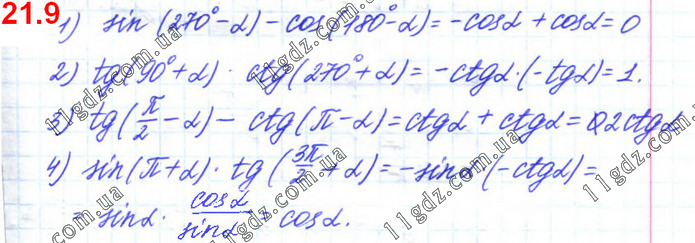 21.9
1) sin (270° - α) - cos(180° - α) = -cosα + cosα = 0
2) tg(90° + α) · ctg(270° + α) = -ctgα · (-tgα) = 1.
3) tg(π/2 - α) - ctg(π - α) = ctgα + ctgα = 2ctgα
4) sin(π + α) · tg(3π/2 + α) = -sinα · (-ctgα) =
= sinα · cosα/sinα = cosα.
11gdz.com.ua
11gdz.com.ua
11gdz.com.ua
11gdz.com.ua
11gdz.com.ua